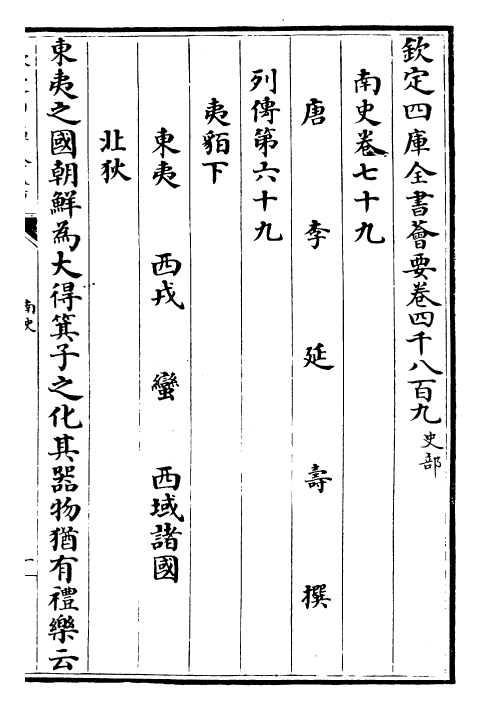 欽定四庫全書薈要卷四千八百九 史部
南史卷七十九
唐 李 延 壽 撰
列傳第六十九
夷貊下
東夷 西戎 蠻 西域諸國
北狄
東夷之國朝鮮為大得箕子之化其器物猶有禮樂云
南史